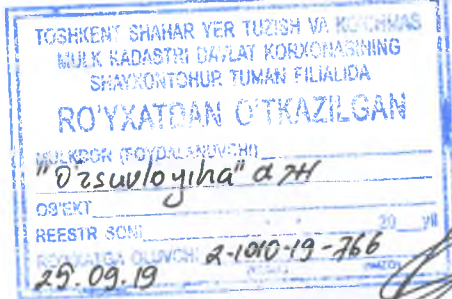 TOSHKENT SHAHAR YER TUZISH VA KO'CHMAS
MULK KADASTRI DAVLAT KORXONASINING
SHAYXONTOHUR TUMAN FILIALIDA
RO'YXATDAN O'TKAZILGAN
MULKDOR (FOYDALANUVCHI)
"O'zsuvloyiha" АЖ
OB'EKT
REESTR SONI 20 yil
ROYXATGA OLUVCHI 2-1010-19-766
25.09.19